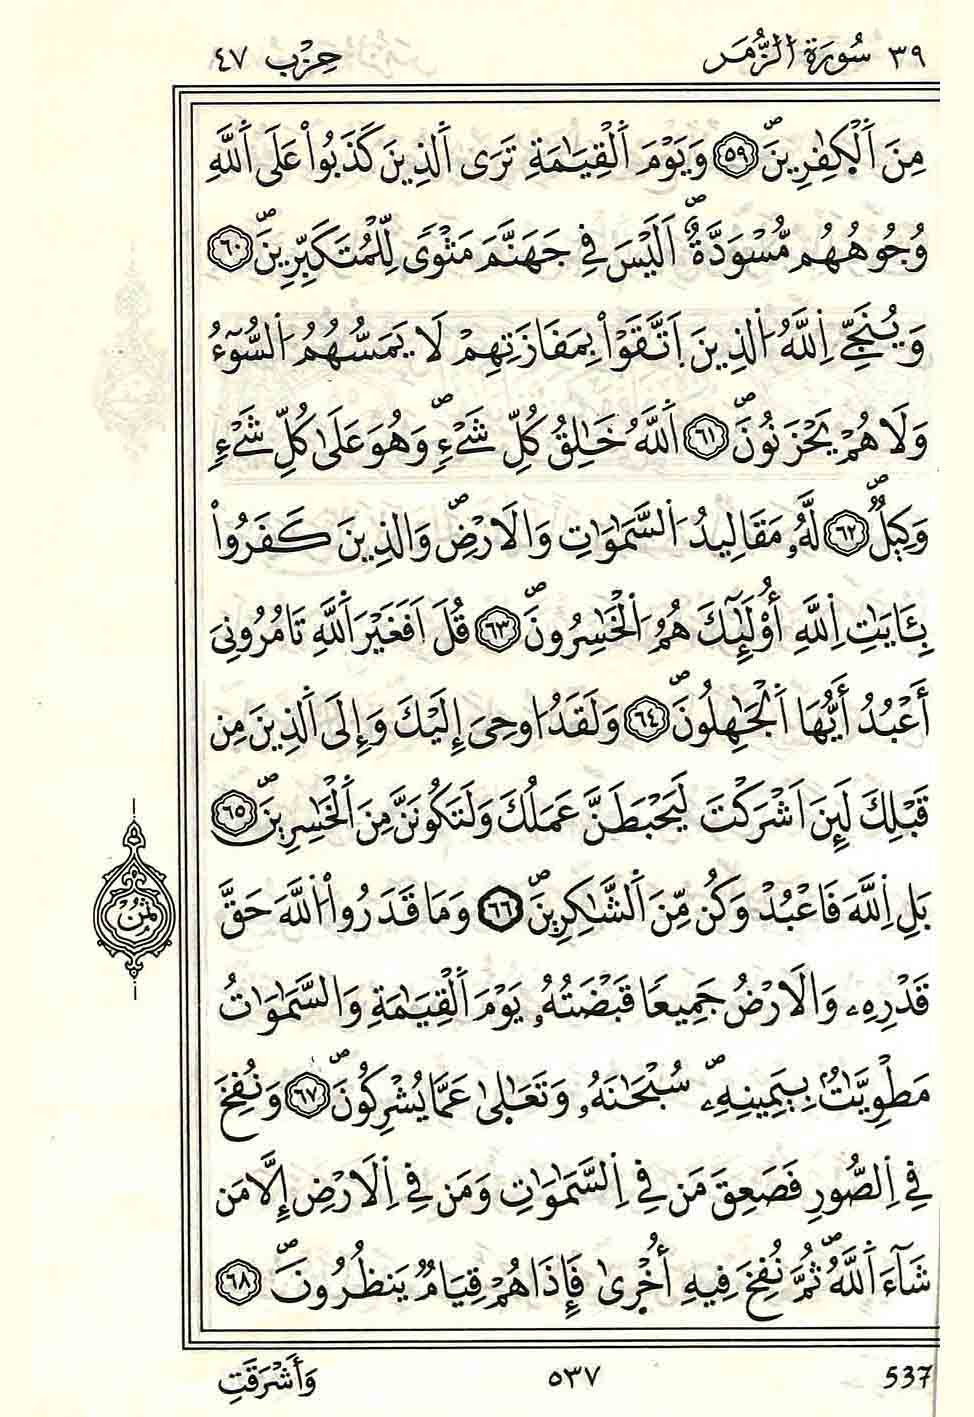 ٣٩ سُورَةُ الزُّمَر حِزْب ٤٧
مِنَ اَ۬لْكٰفِرِينَۖ ٥٩ وَيَوْمَ اَ۬لْقِيَٰمَةِ تَرَى اَ۬لذِينَ كَذَبُواْ عَلَى اَ۬للَّهِ
وُجُوهُهُم مُّسْوَدَّةٌۖ اَلَيْسَ فِے جَهَنَّمَ مَثْوٗى لِّلْمُتَكَبِّرِينَۖ ٦٠
وَيُنَجِّے اِ۬للَّهُ اُ۬لذِينَ اَ۪تَّقَوْاْ بِمَفَازَتِهِمْ لَا يَمَسُّهُمُ اُ۬لسُّوٓءُ
وَلَا هُمْ يَحْزَنُونَۖ ٦١ اَ۬للَّهُ خَٰلِقُ كُلِّ شَےْءٖۖ وَهُوَ عَلَىٰ كُلِّ شَےْءٖ
وَكِيلٞۖ ٦٢ لَّهُۥ مَقَالِيدُ اُ۬لسَّمَٰوَٰتِ وَالَارْضِۖ وَالذِينَ كَفَرُواْ
بِـَٔايَٰتِ اِ۬للَّهِ أُوْلَٰٓئِكَ هُمُ اُ۬لْخَٰسِرُونَۖ ٦٣ قُلَ اَفَغَيْرَ اَ۬للَّهِ تَامُرُونِيَ
أَعْبُدُ أَيُّهَا اَ۬لْجَٰهِلُونَۖ ٦٤ وَلَقَدُ ا۟وحِيَ إِلَيْكَ وَإِلَى اَ۬لذِينَ مِن
قَبْلِكَ لَئِنَ اَشْرَكْتَ لَيَحْبَطَنَّ عَمَلُكَ وَلَتَكُونَنَّ مِنَ اَ۬لْخَٰسِرِينَۖ ٦٥
بَلِ اِ۬للَّهَ فَاعْبُدْ وَكُن مِّنَ اَ۬لشَّٰكِرِينَۖ ٦٦ وَمَا قَدَرُواْ اُ۬للَّهَ حَقَّ
ثُمُن
قَدْرِهِۦ وَالَارْضُ جَمِيعاٗ قَبْضَتُهُۥ يَوْمَ اَ۬لْقِيَٰمَةِ وَالسَّمَٰوَٰتُ
مَطْوِيَّٰتُۢ بِيَمِينِهِۦۖ سُبْحَٰنَهُۥ وَتَعَٰلَىٰ عَمَّا يُشْرِكُونَۖ ٦٧ وَنُفِخَ
فِے اِ۬لصُّورِ فَصَعِقَ مَن فِے اِ۬لسَّمَٰوَٰتِ وَمَن فِے اِ۬لَارْضِ إِلَّا مَن
شَآءَ اَ۬للَّهُۖ ثُمَّ نُفِخَ فِيهِ أُخْر۪ىٰ فَإِذَا هُمْ قِيَامٞ يَنظُرُونَۖ ٦٨
وَأَشْرَقَتِ ٥٣٧ 537